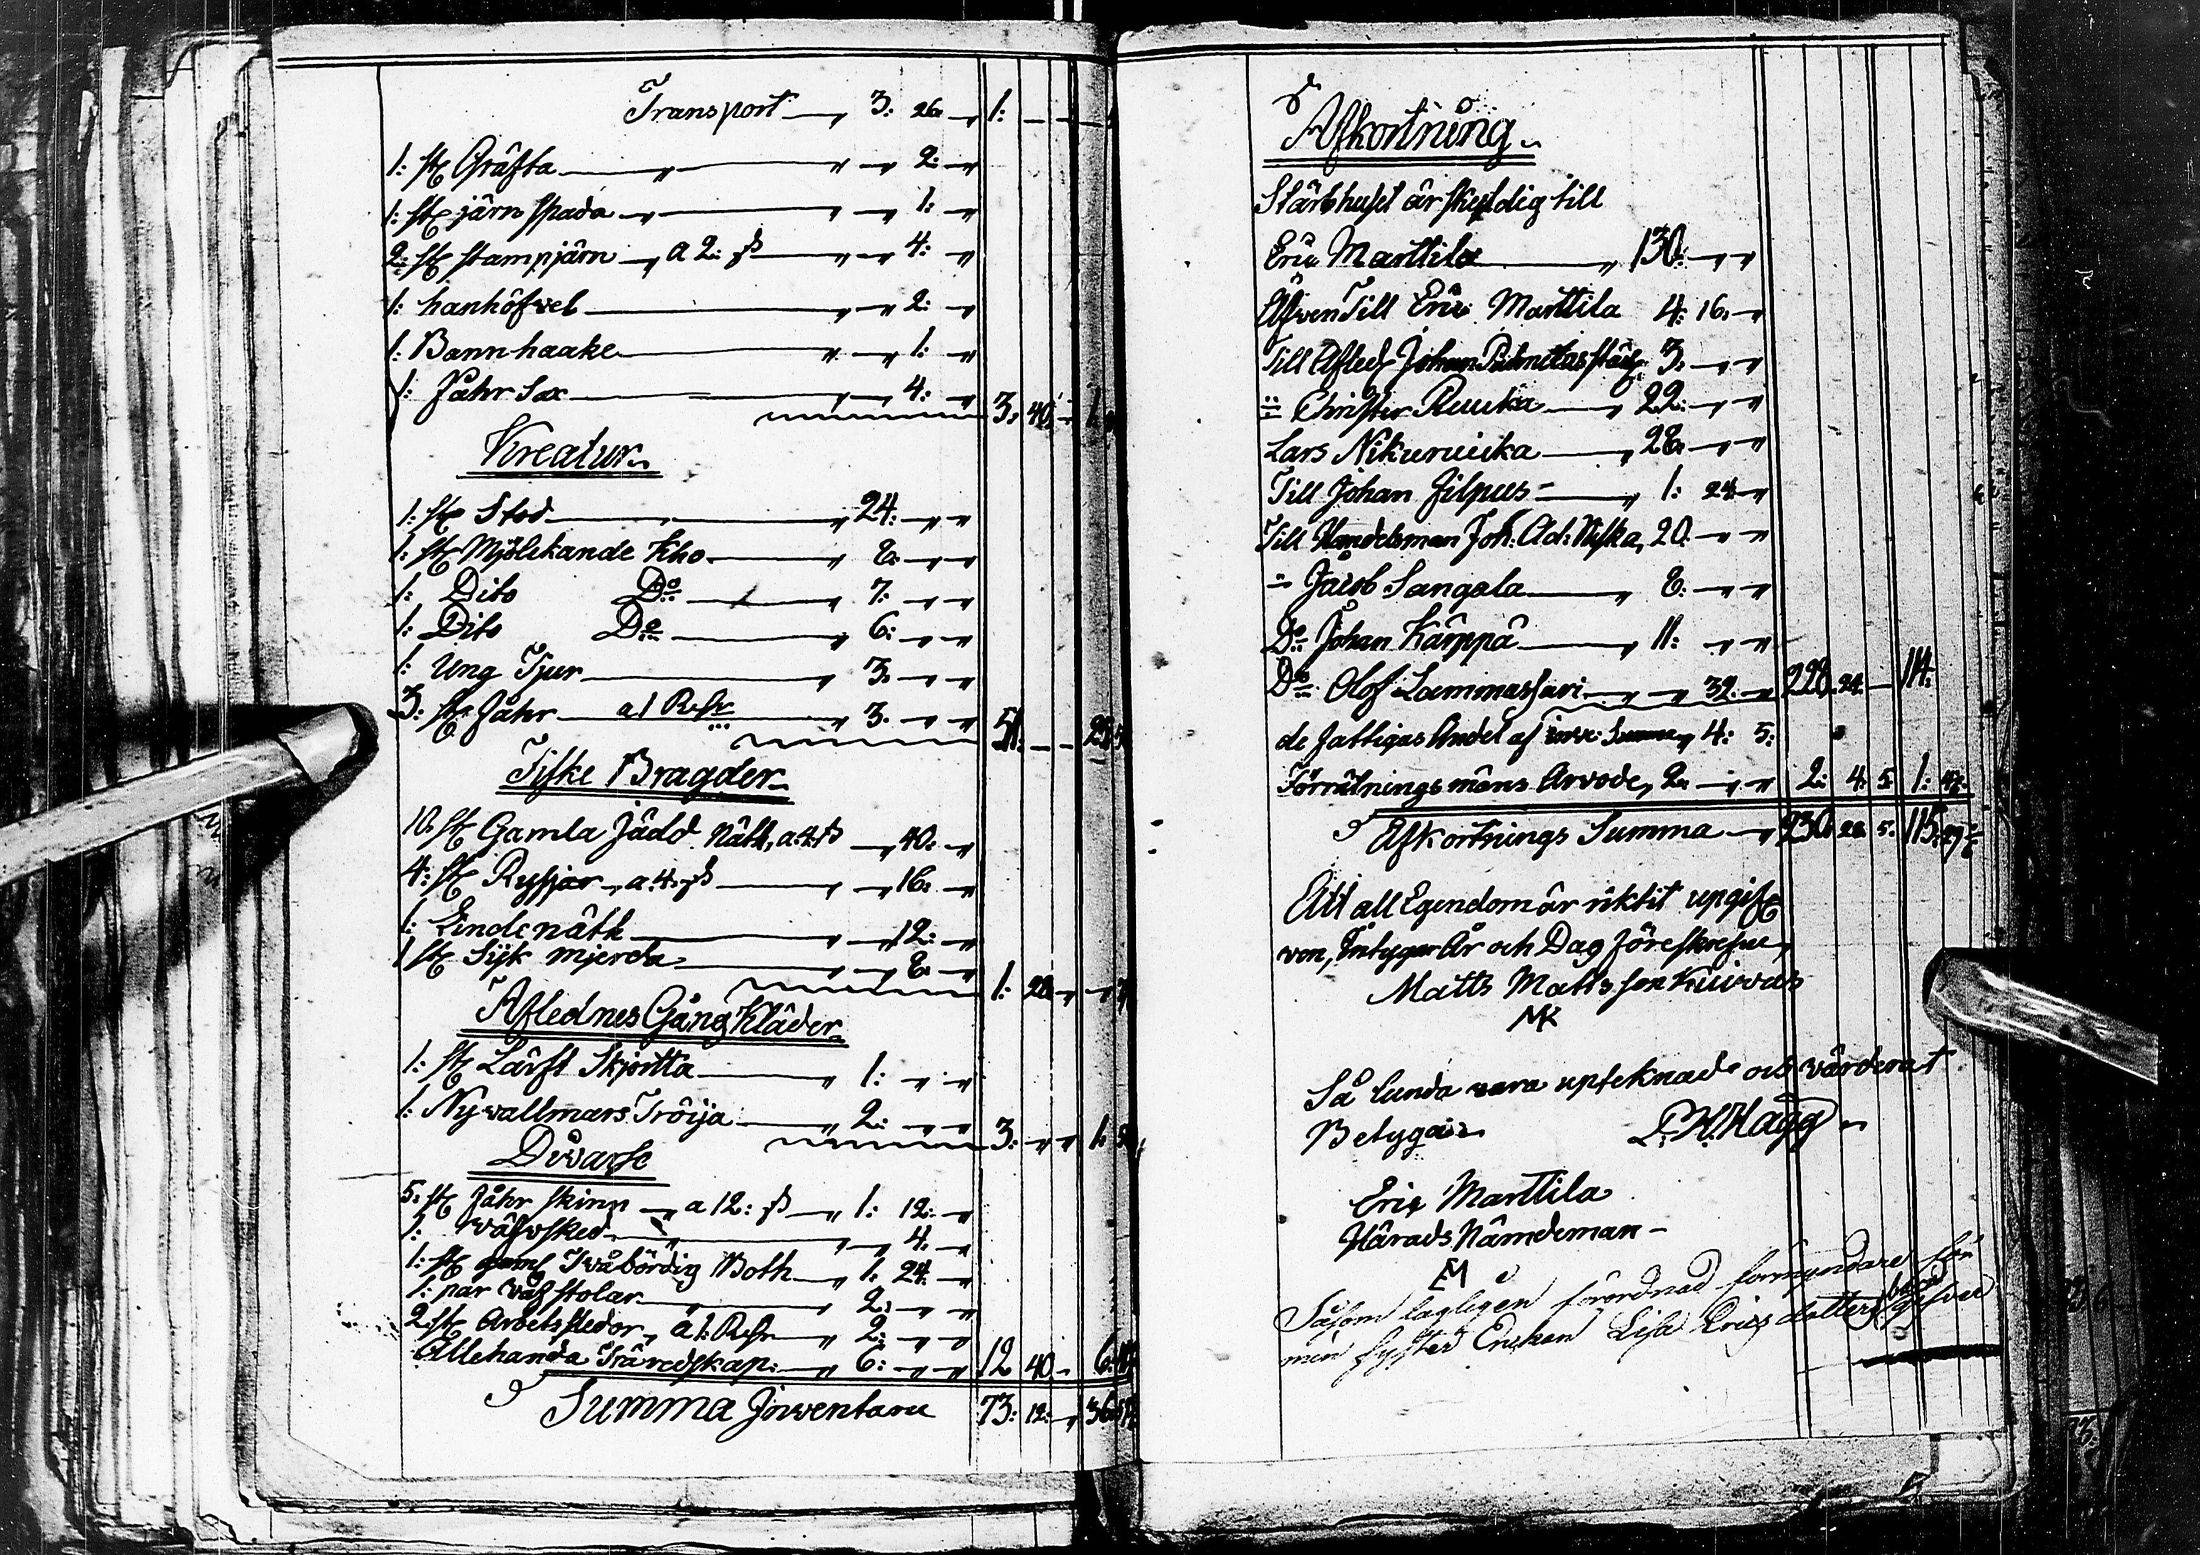 Transport — 3: 26 — 1: — —
1: st Gräfta — " — 2: —
1: st järn spada — — 1: —
2: st stampjärn — a 2: sk — — 4: —
1: hanhöfvel — — 2: —
1: Bann haake — — 1: —
1: Fåhr Sax — — 4: — 3: 40: — 1:
Kreatur
1: st Stod — 24: — —
1: st Mjölckande Kho — 8: — —
1: Dito Do — 7: — —
1: Dito Do — 6: — —
1: Ung Tjur — 3: — —
3: st Fåhr — a 1 Rdr — 3: — — 51: — —
Fiske Bragder
10: st Gamla Jädd Nätt, a: 4: sk — 40: —
4: st Ryssjor — a: 4: sk — — 16: —
1: Linde näth — — 12: —
1 st Sijk mjerda — — 8: — 1: 28 —
Aflednes Gång Kläder
1: st Lärft Skjortta — 1: — —
1: Ny vallmars Tröija — 2: — — 3: — — 1:
Diwarse
5: st Fåhr skinn — a 12: sk — 1: 12: —
1: wäfvsked — — 4: —
1: st gaml Tvåbördig Both — 1: 24: —
1: par väfstolar — 2: — —
2: st Arbets sledor, a 1: Rdr — 2: — —
Allehanda Trä redskap: — 6: — — 12 40 —
Summa Jnventarie 73: 12: — 36
Afkortning
Stärbhuset är skyldig till
Eric Marttila — 130: — —
Äfven Till Eric Marttila 4: 16: —
Till Afled Johan 3: — —
= Christer — 22: — —
Lars — 28: — —
Till Johan Filpus — 1: 24: —
Till Handelsman Joh: Ad: Niska, 20: — —
= Jacob Sangala — 8: — —
Do Johan Kärppä — 11: — —
Do Olof Lammassari — — 32: — 228: 24: — 114:
de Fattigas Andel af Summa, 4: 5:
Förrätnings mäns Arvode, 2: — — 2: 4: 5: 1:
Afkortnings Summa — 230: 28: 5: 115:
Att all Egendom är riktit upgif
ven, Intygar År och Dag föreskrefne
Matts Mattsson Kuivas
MK
Så lunda vara upteknade och värderat
Betygar P. H. Hägg
Eric Marttila
Härads Nämdeman
EM
Såsom lagligen förordnad förmyndare för
min syster Enckan Lisa Ericsdotters barn